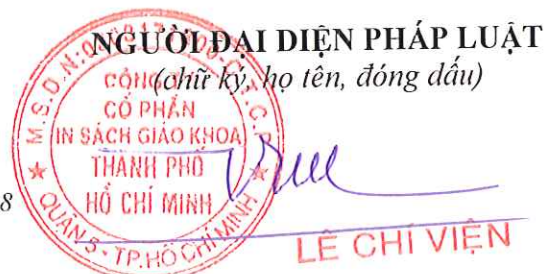 NGƯỜI ĐẠI DIỆN PHÁP LUẬT
(chữ ký, họ tên, đóng dấu)
CỔ PHẦN
IN SÁCH GIÁO KHOA
THÀNH PHỐ
HỒ CHÍ MINH
QUẬN 5 - TP. HỒ CHÍ MINH
M.S.D.N:
8
LÊ CHÍ VIỄN